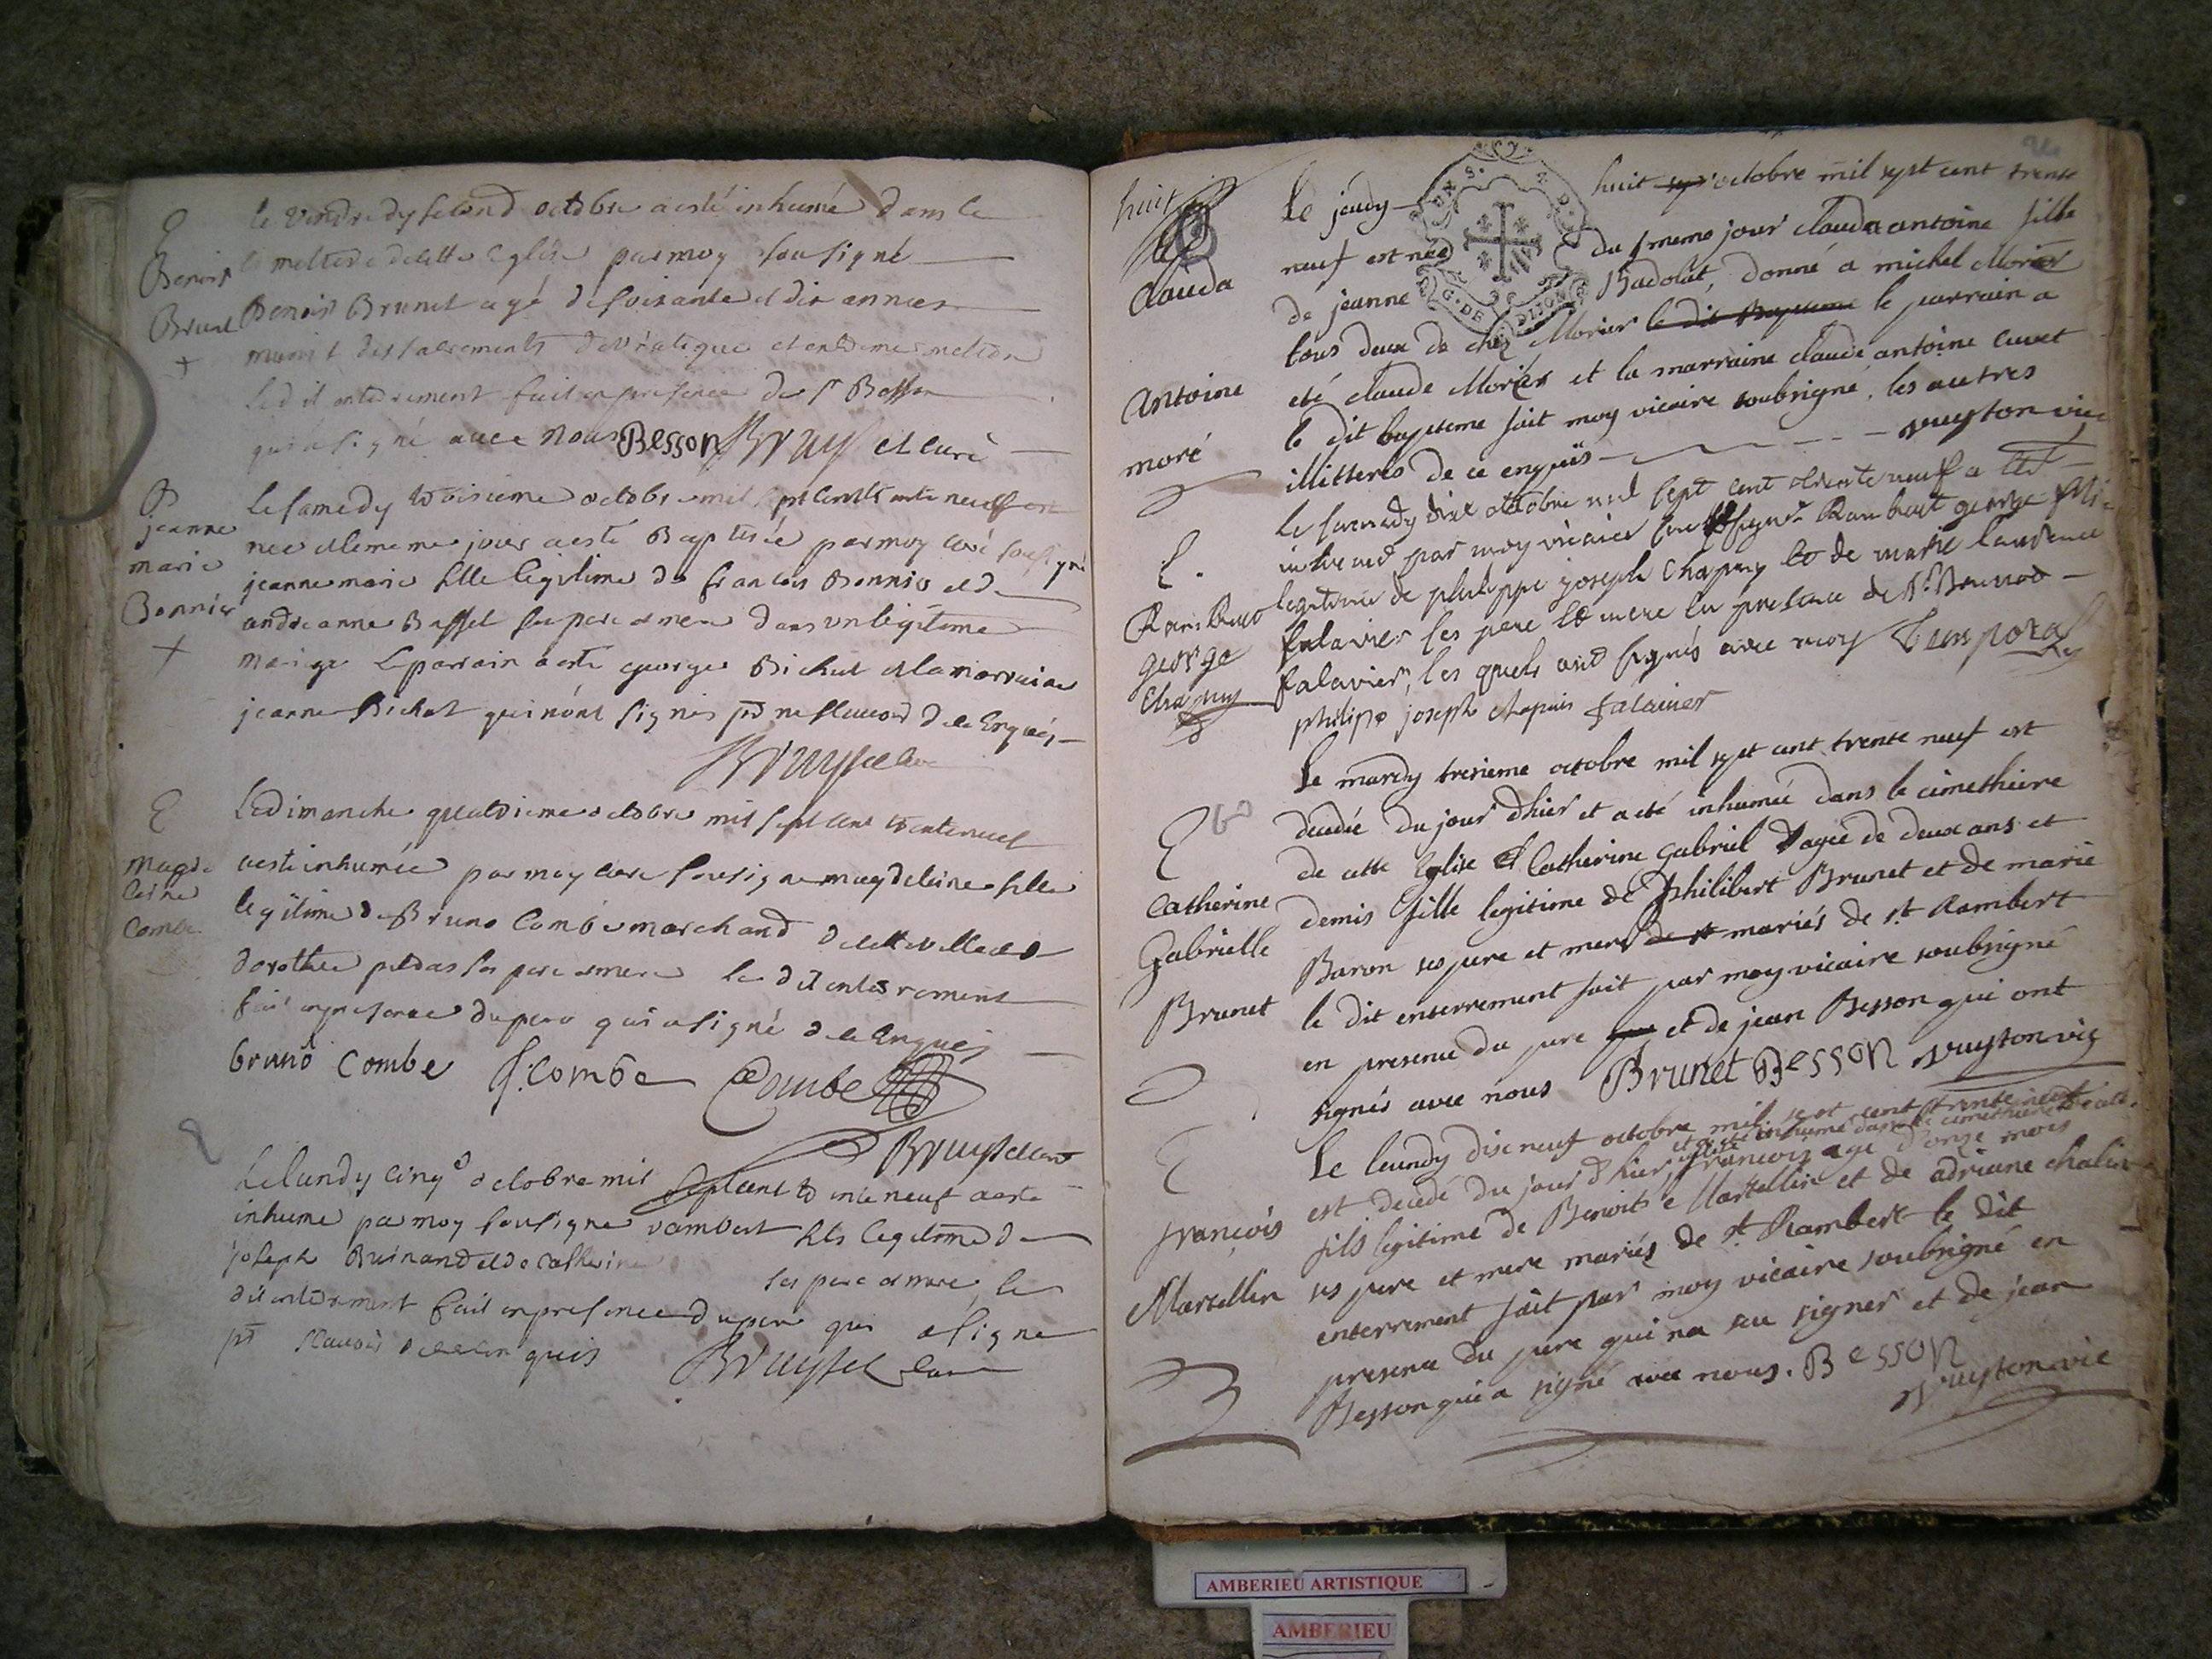 E
Benoist
Brunet
+
le vendredy second octobre a esté inhumé dans le
cimettere de cette Eglise par moy sousigné
Benoist Brunet agé de soixante et dix annees
munit des sacrements de viatique et
le dit enterrement fait en presence de sr Besson
qui a signé avec nous Besson Bruyset curé
B
jeanne
marie
Bonnier
+
le samedy troisieme octobre mil sept cent trante neuf est
nee et le meme jour a esté Baptisée par moy curé sousigné
jeanne marie fille legitime de francois Bonnier et d
andre anne Bassel ses pere et mere dans un legitime
mariage le parain a esté george Bichat et la marraine
jeanne Bichat qui n'ont signés pr ne scavoir de ce Enquis
Bruyset curé
E
magde
leine
Combe
Le dimanche quatrieme octobre mil sept cent trente neuf
a esté inhumée par moy curé sousigné magdeleine fille
legitime de Bruno Combe marchand de cette ville et d
dorothée ses pere et mere le dit enterrement
fait en presence du pere qui a signé de ce Enquis
bruno Combe f. Combe Combe
Bruyset curé
Le lundy cinqe octobre mil sept cent trente neuf a esté
inhumé par moy sousigné rambert fils legitime de
joseph et de catherine
ses pere et mere, le
dit enterrement fait en presence du pere qui a signé
pr scavoir de ce enquis Bruyset curé
huit
B
Clauda
Antoine
moré
le jeudy huit octobre mil sept cent trente
neuf est née du meme jour clauda antoine fille
de jeanne Badolat, donné a michel Morier
tous deux de chez Morier le dit Bapteme le parrain a
eté claude Morier et la marraine claude antoine cuvet
le dit bapteme fait moy vicaire soubsigné, les autres
illitterés de ce enquis
vuyton vic
E.
Rambert
george
Chapuy
le samedy dix octobre mil sept cent trente neuf a été
inhumé par moy vicaire sousigné Rambert george fils
legitime de philippe joseph Chapuy et de marie laurence
falavier ses pere et mere en presence de
falavier, les quels ont signés avec moy Temporal
philipe joseph chapuis falavier
E
Catherine
Gabrielle
Brunet
Le mardy tresieme octobre mil sept cent trente neuf est
decedée du jour d'hier et a eté inhumée dans le cimethiere
de cette Eglise Catherine Gabriel agée de deux ans et
demis fille legitime de Philibert Brunet et de marie
Baron ses pere et mere de st mariés de st Rambert
le dit enterrement fait par moy vicaire soubsigné
en presence du pere et de jean Besson qui ont
signés avec nous Brunet Besson vuyton vic
E
françois
Martellin
Le leundy dixneuf octobre mil sept cent trente neuf
et a eté inhumé dans le cimethiere de cette eglise
est decedé du jour d'hier françois agé d'onze mois
fils legitime de Benoit Martellin et de adriane chalin
ses pere et mere mariés de st Rambert le dit
enterrement fait par moy vicaire soubsigné en
presence du pere qui na seu signer et de jean
Besson qui a signé avec nous. Besson
vuyton vic
AMBERIEU ARTISTIQUE
AMBERIEU